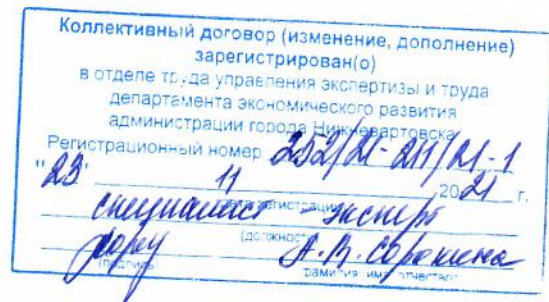 Коллективный договор (изменение, дополнение)
зарегистрирован(о)
в отделе труда управления экспертизы и труда
департамента экономического развития
администрации города Нижневартовска
Регистрационный номер 252/21-
"23" 11 2021 г.
специалист - эксперт
(должность)
А.В. Сорокина
(подпись) фамилия имя отчество